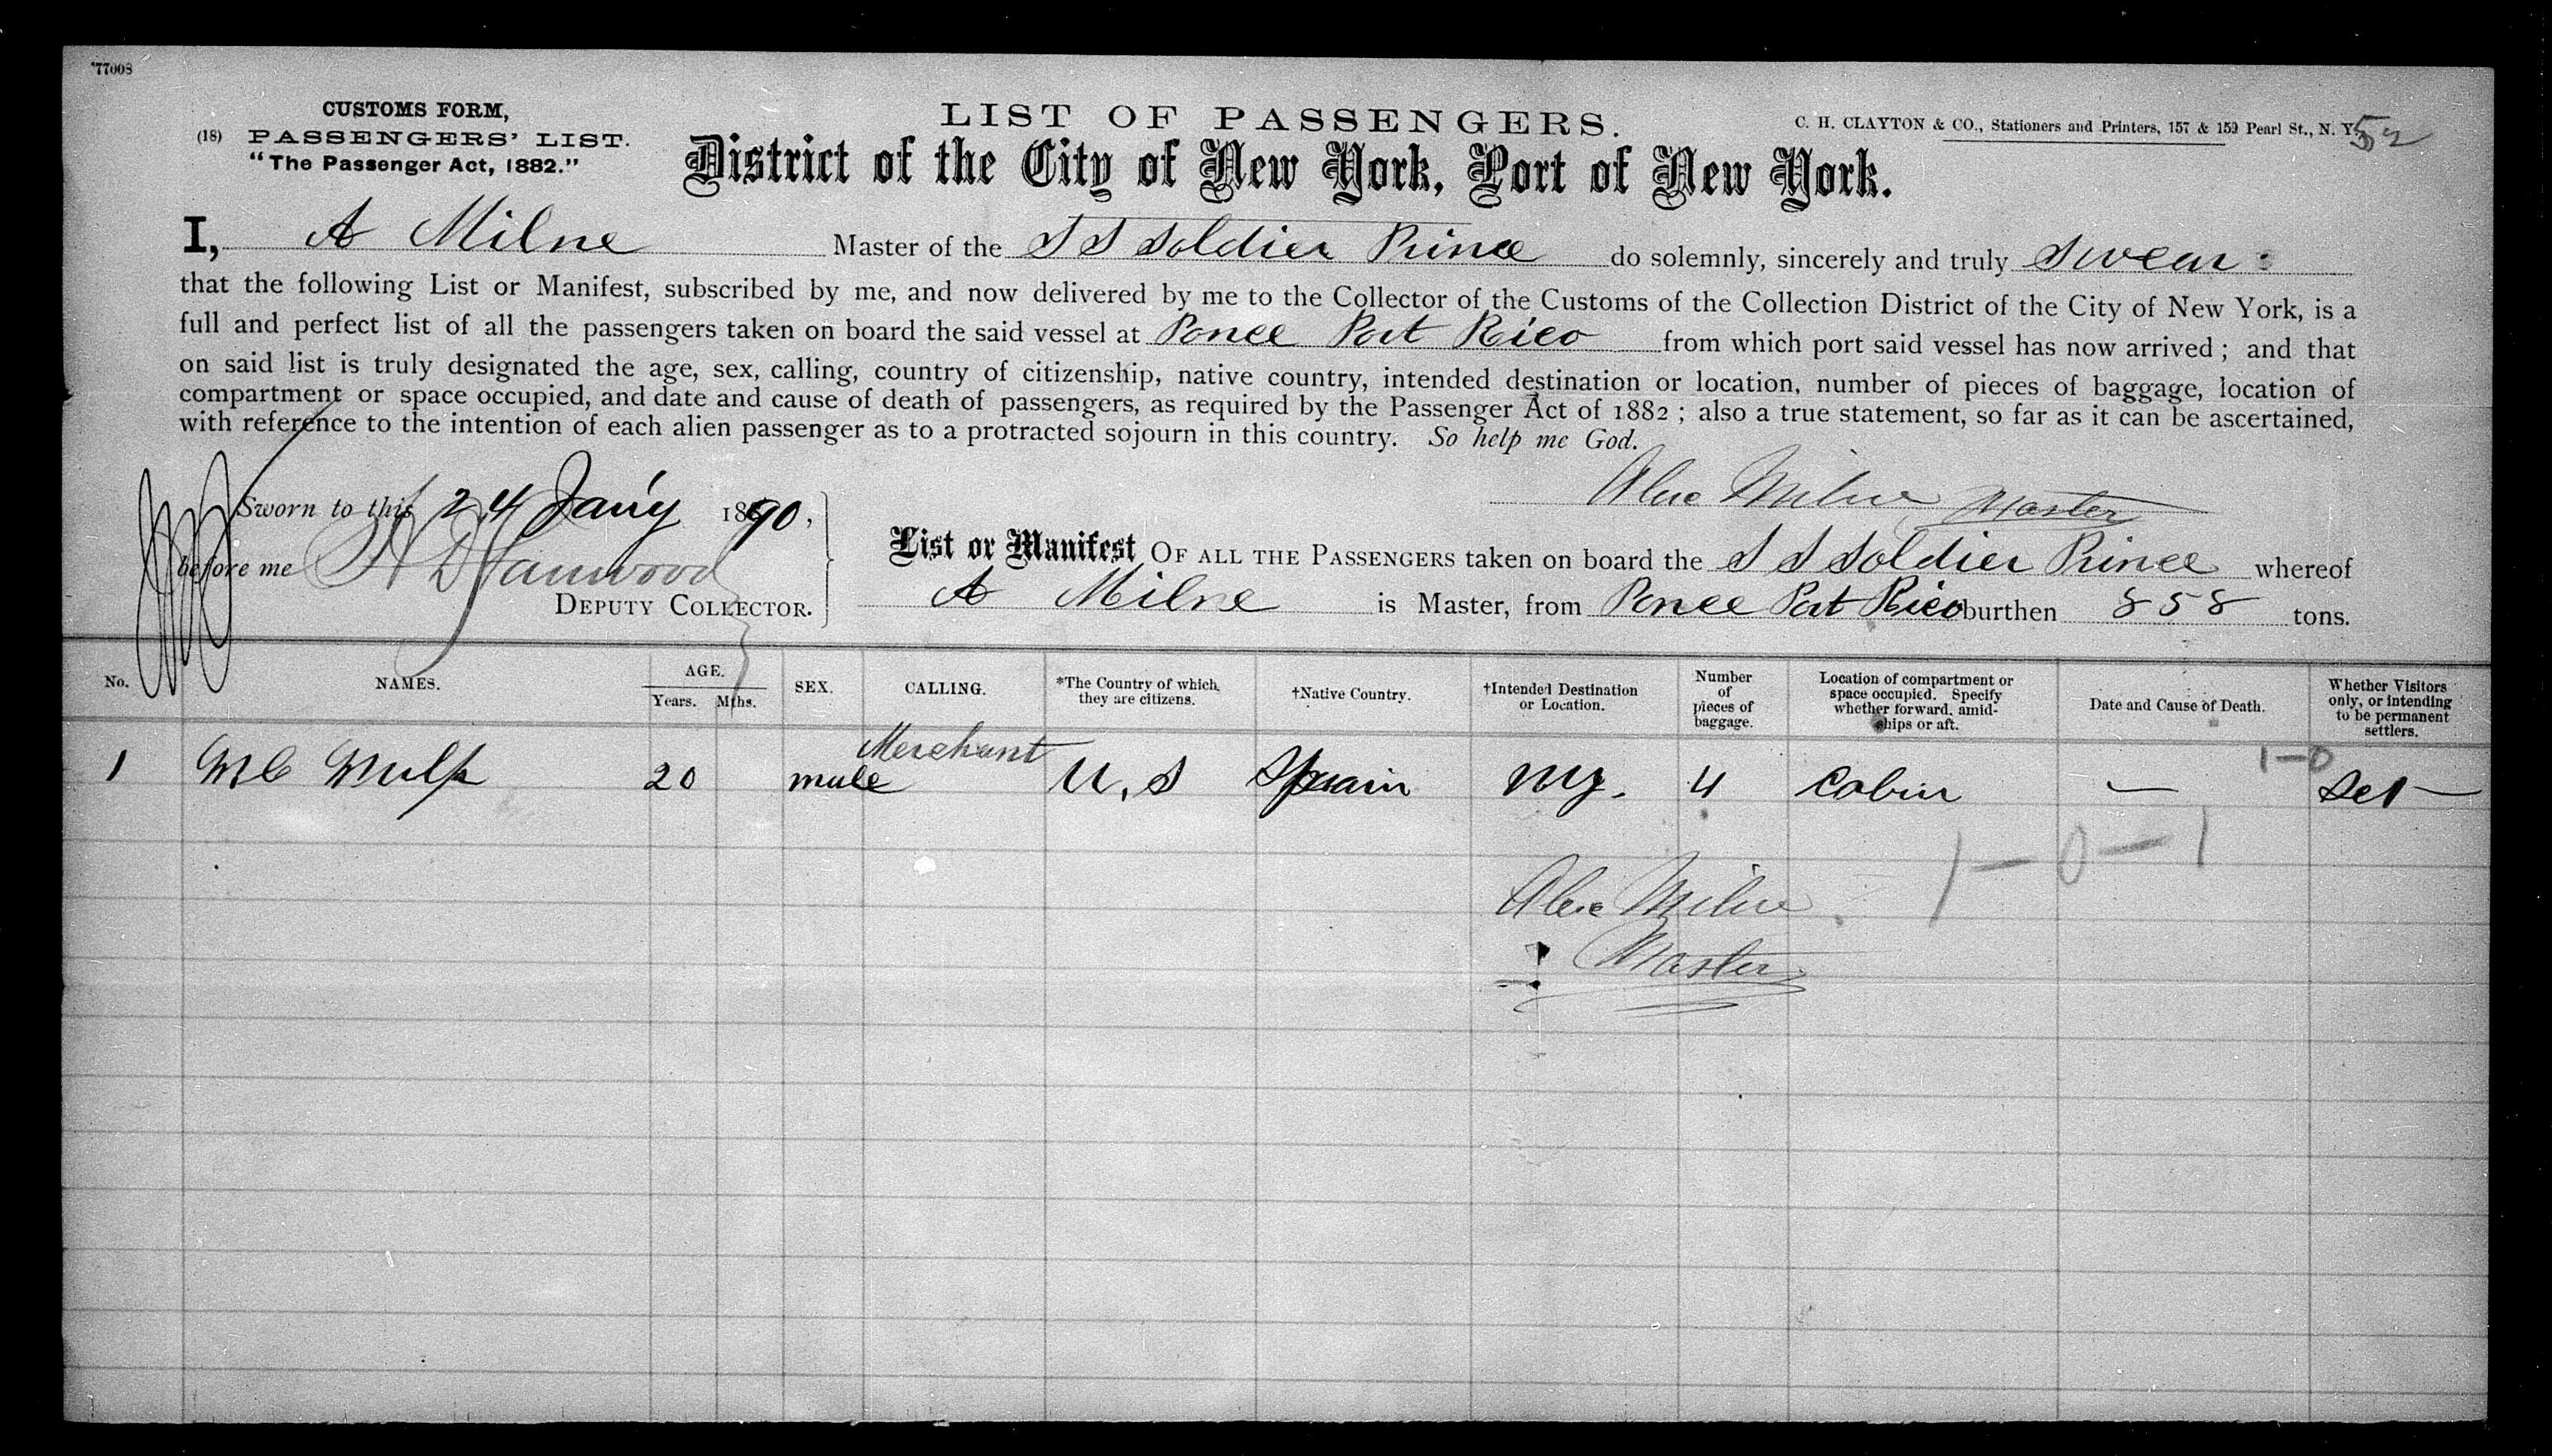 '77008
CUSTOMS FORM,
(18) PASSENGERS' LIST.
"The Passenger Act, 1882."
LIST OF PASSENGERS.
C. H. CLAYTON & CO., Stationers and Printers, 157 & 159 Pearl St., N. Y.
52
District of the City of New York, Port of New York.
I, A Milne Master of the S S Soldier Prince do solemnly, sincerely and truly swear:
that the following List or Manifest, subscribed by me, and now delivered by me to the Collector of the Customs of the Collection District of the City of New York, is a
full and perfect list of all the passengers taken on board the said vessel at Ponce Port Rico from which port said vessel has now arrived; and that
on said list is truly designated the age, sex, calling, country of citizenship, native country, intended destination or location, number of pieces of baggage, location of
compartment or space occupied, and date and cause of death of passengers, as required by the Passenger Act of 1882; also a true statement, so far as it can be ascertained,
with reference to the intention of each alien passenger as to a protracted sojourn in this country. So help me God.
Alex Milne Master
Sworn to this 24 Jan'y 1890,
before me
DEPUTY COLLECTOR.
List or Manifest OF ALL THE PASSENGERS taken on board the S S Soldier Prince whereof
A Milne is Master, from Ponce Port Rico burthen 858 tons.
No. NAMES. AGE. Years. Mths. SEX. CALLING. *The Country of which they are citizens. †Native Country. †Intended Destination or Location. Number of pieces of baggage. Location of compartment or space occupied. Specify whether forward, amidships or aft. Date and Cause of Death. Whether Visitors only, or intending to be permanent settlers.
1 20 male Merchant U.S Spain NY. 4 Cabin — Set —
1-0
1-0-1
Alex Milne
Master